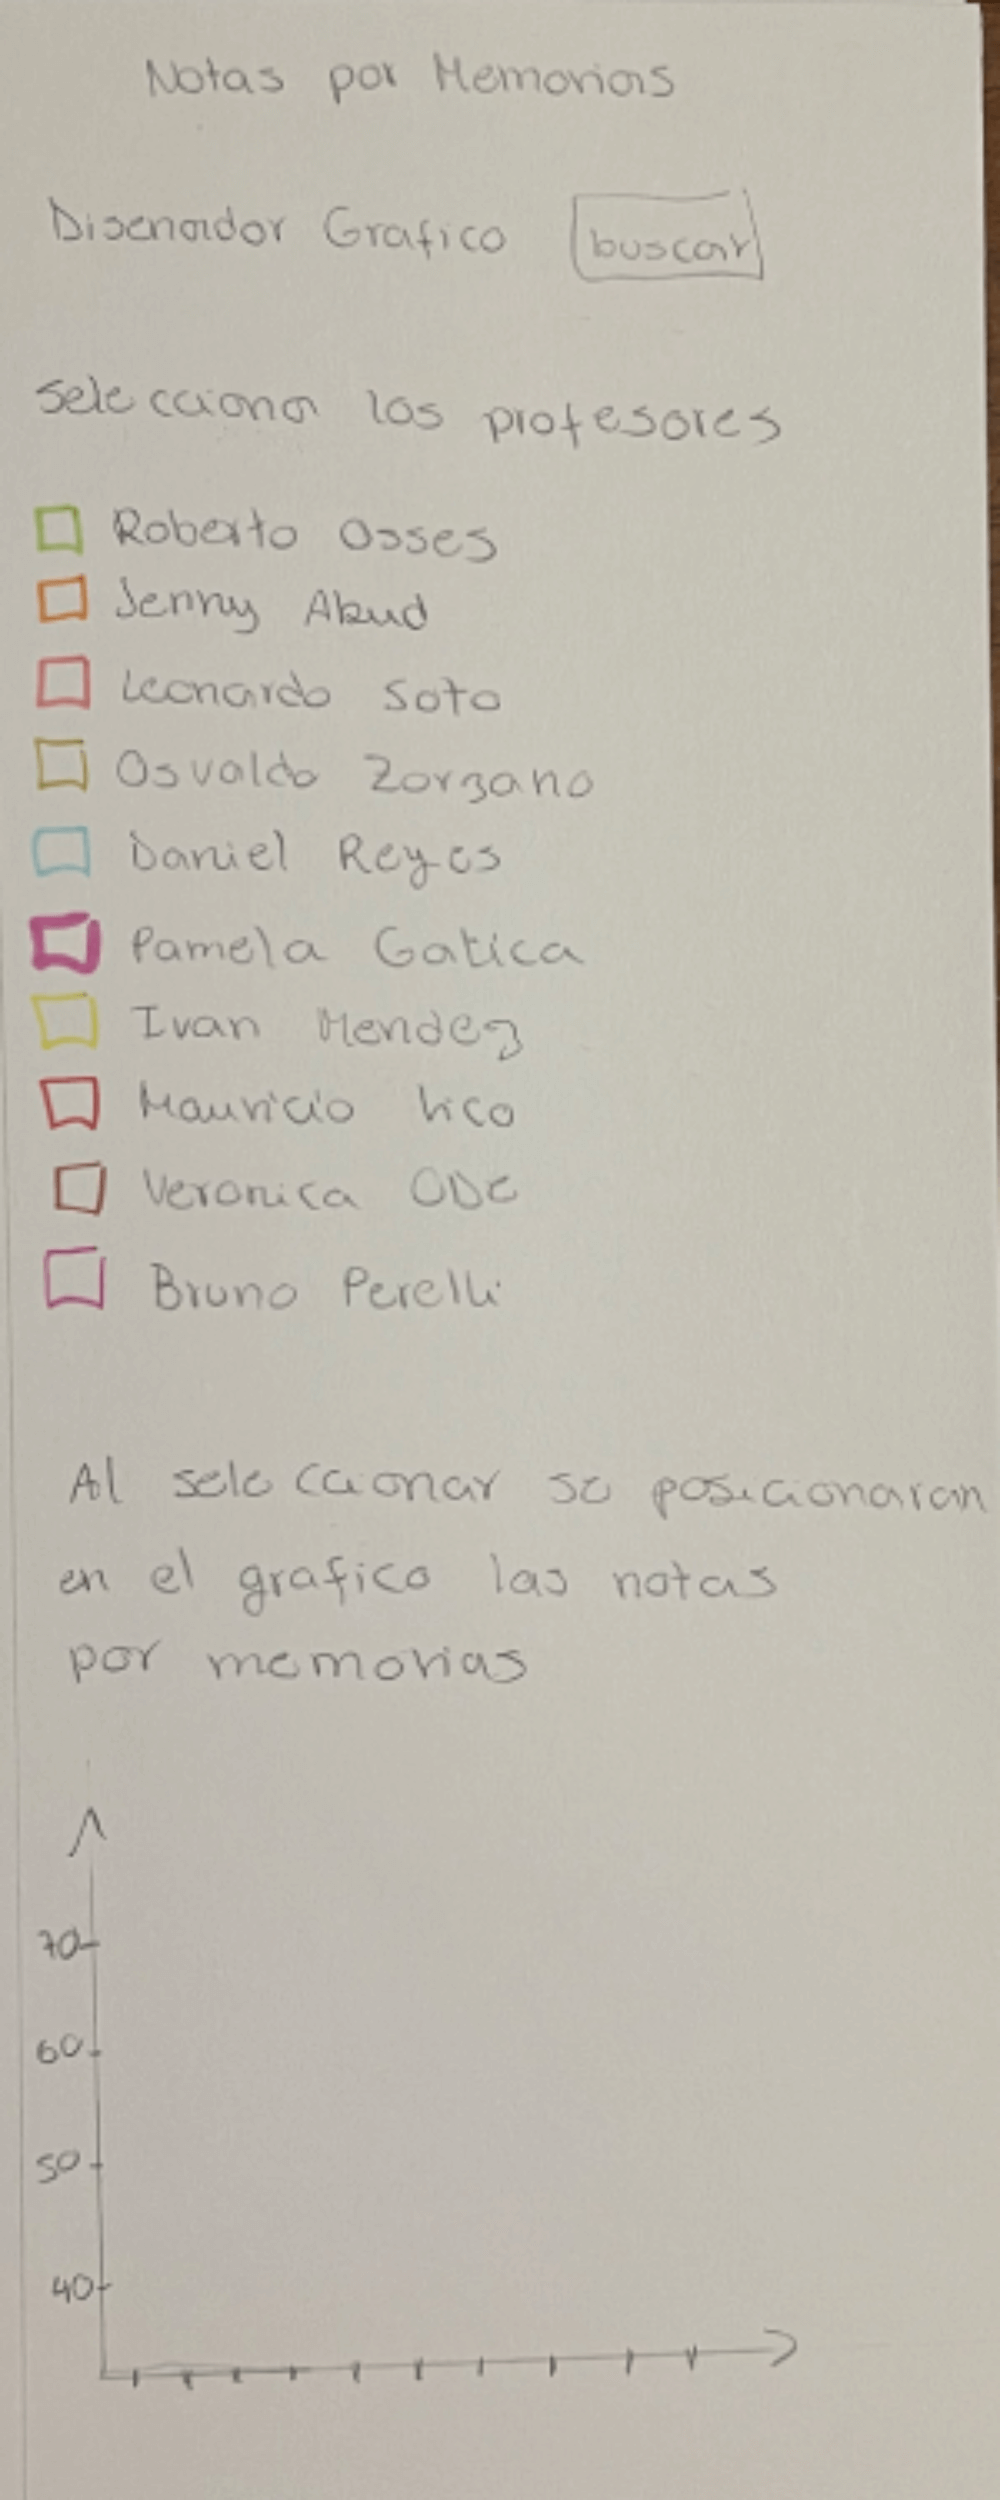 Notas por Memorias
Disenador Grafico buscar
Selecciona los profesores
Roberto Osses
Jenny Abud
Leonardo Soto
Osvaldo Zorzano
Daniel Reyes
Pamela Gatica
Ivan Mendez
Mauricio Vico
Veronica Ode
Bruno Perelli
Al seleccionar se posicionaran
en el grafico las notas
por memorias
70
60
50
40